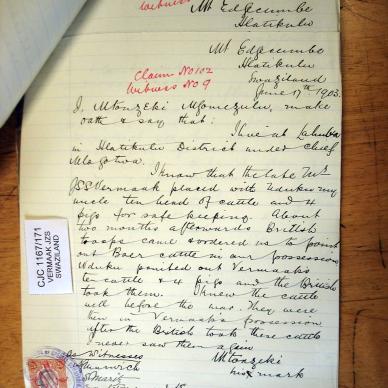 Witness
Mt Edgecumbe
Hlatikulu
Mt Edgecumbe
Hlatikulu
Swaziland
June 17th 1903.
Claim No 102
Witness No 9
I, Mtonzeki Mgomezulu, make
oath & say that:
I live at
in Hlatikulu District under chief
I know that the late Mr
JSS Vermaak placed with my
uncle ten head of cattle and 4
pigs for safe keeping. About
two months afterwards British
troops came & ordered us to point
out Boer cattle in our possession
pointed out Vermaaks
ten cattle & 4 pigs and the British
took them. I knew the cattle
well before the war. They were
then in Vermaak's possession
after the British took these cattle
I never saw them again
Mtonzeki
his x mark
As Witnesses
CJC 1167/171
VERMAAK JZS
SWAZILAND